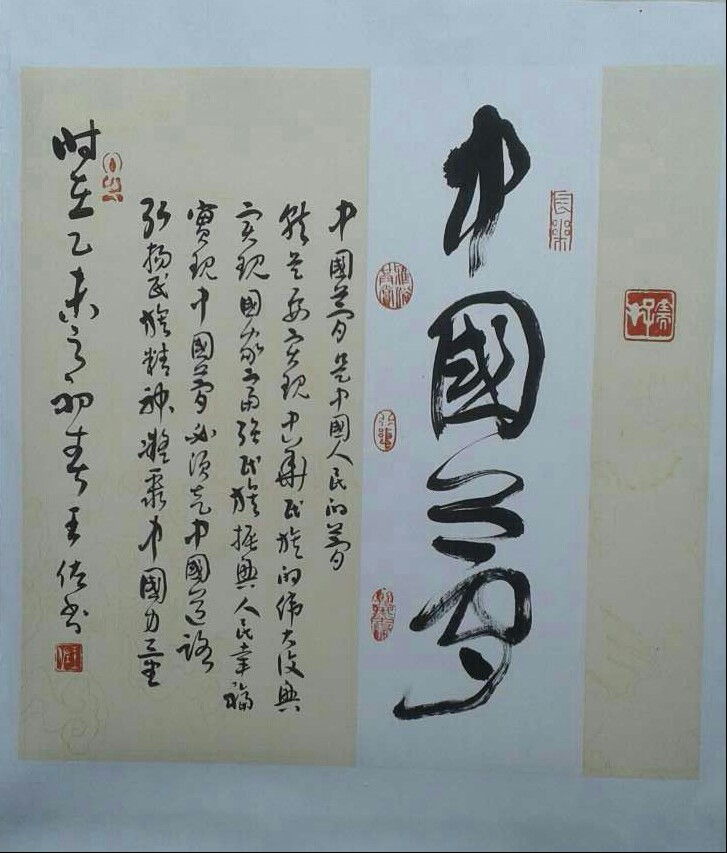 中國夢
中國夢是中國人民的夢
就是要实現中華民族的偉大復興
实現國家富强民族振興人民幸福
實現中国夢必須走中國道路
弘扬民族精神凝聚中國力量
时在乙未之初春王佐书
長樂